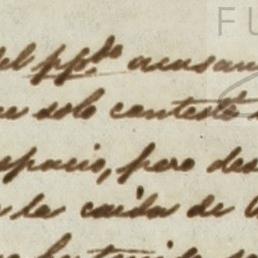 FU
del pp.do acusan
solo contesté
espacio, pero des
la caida de